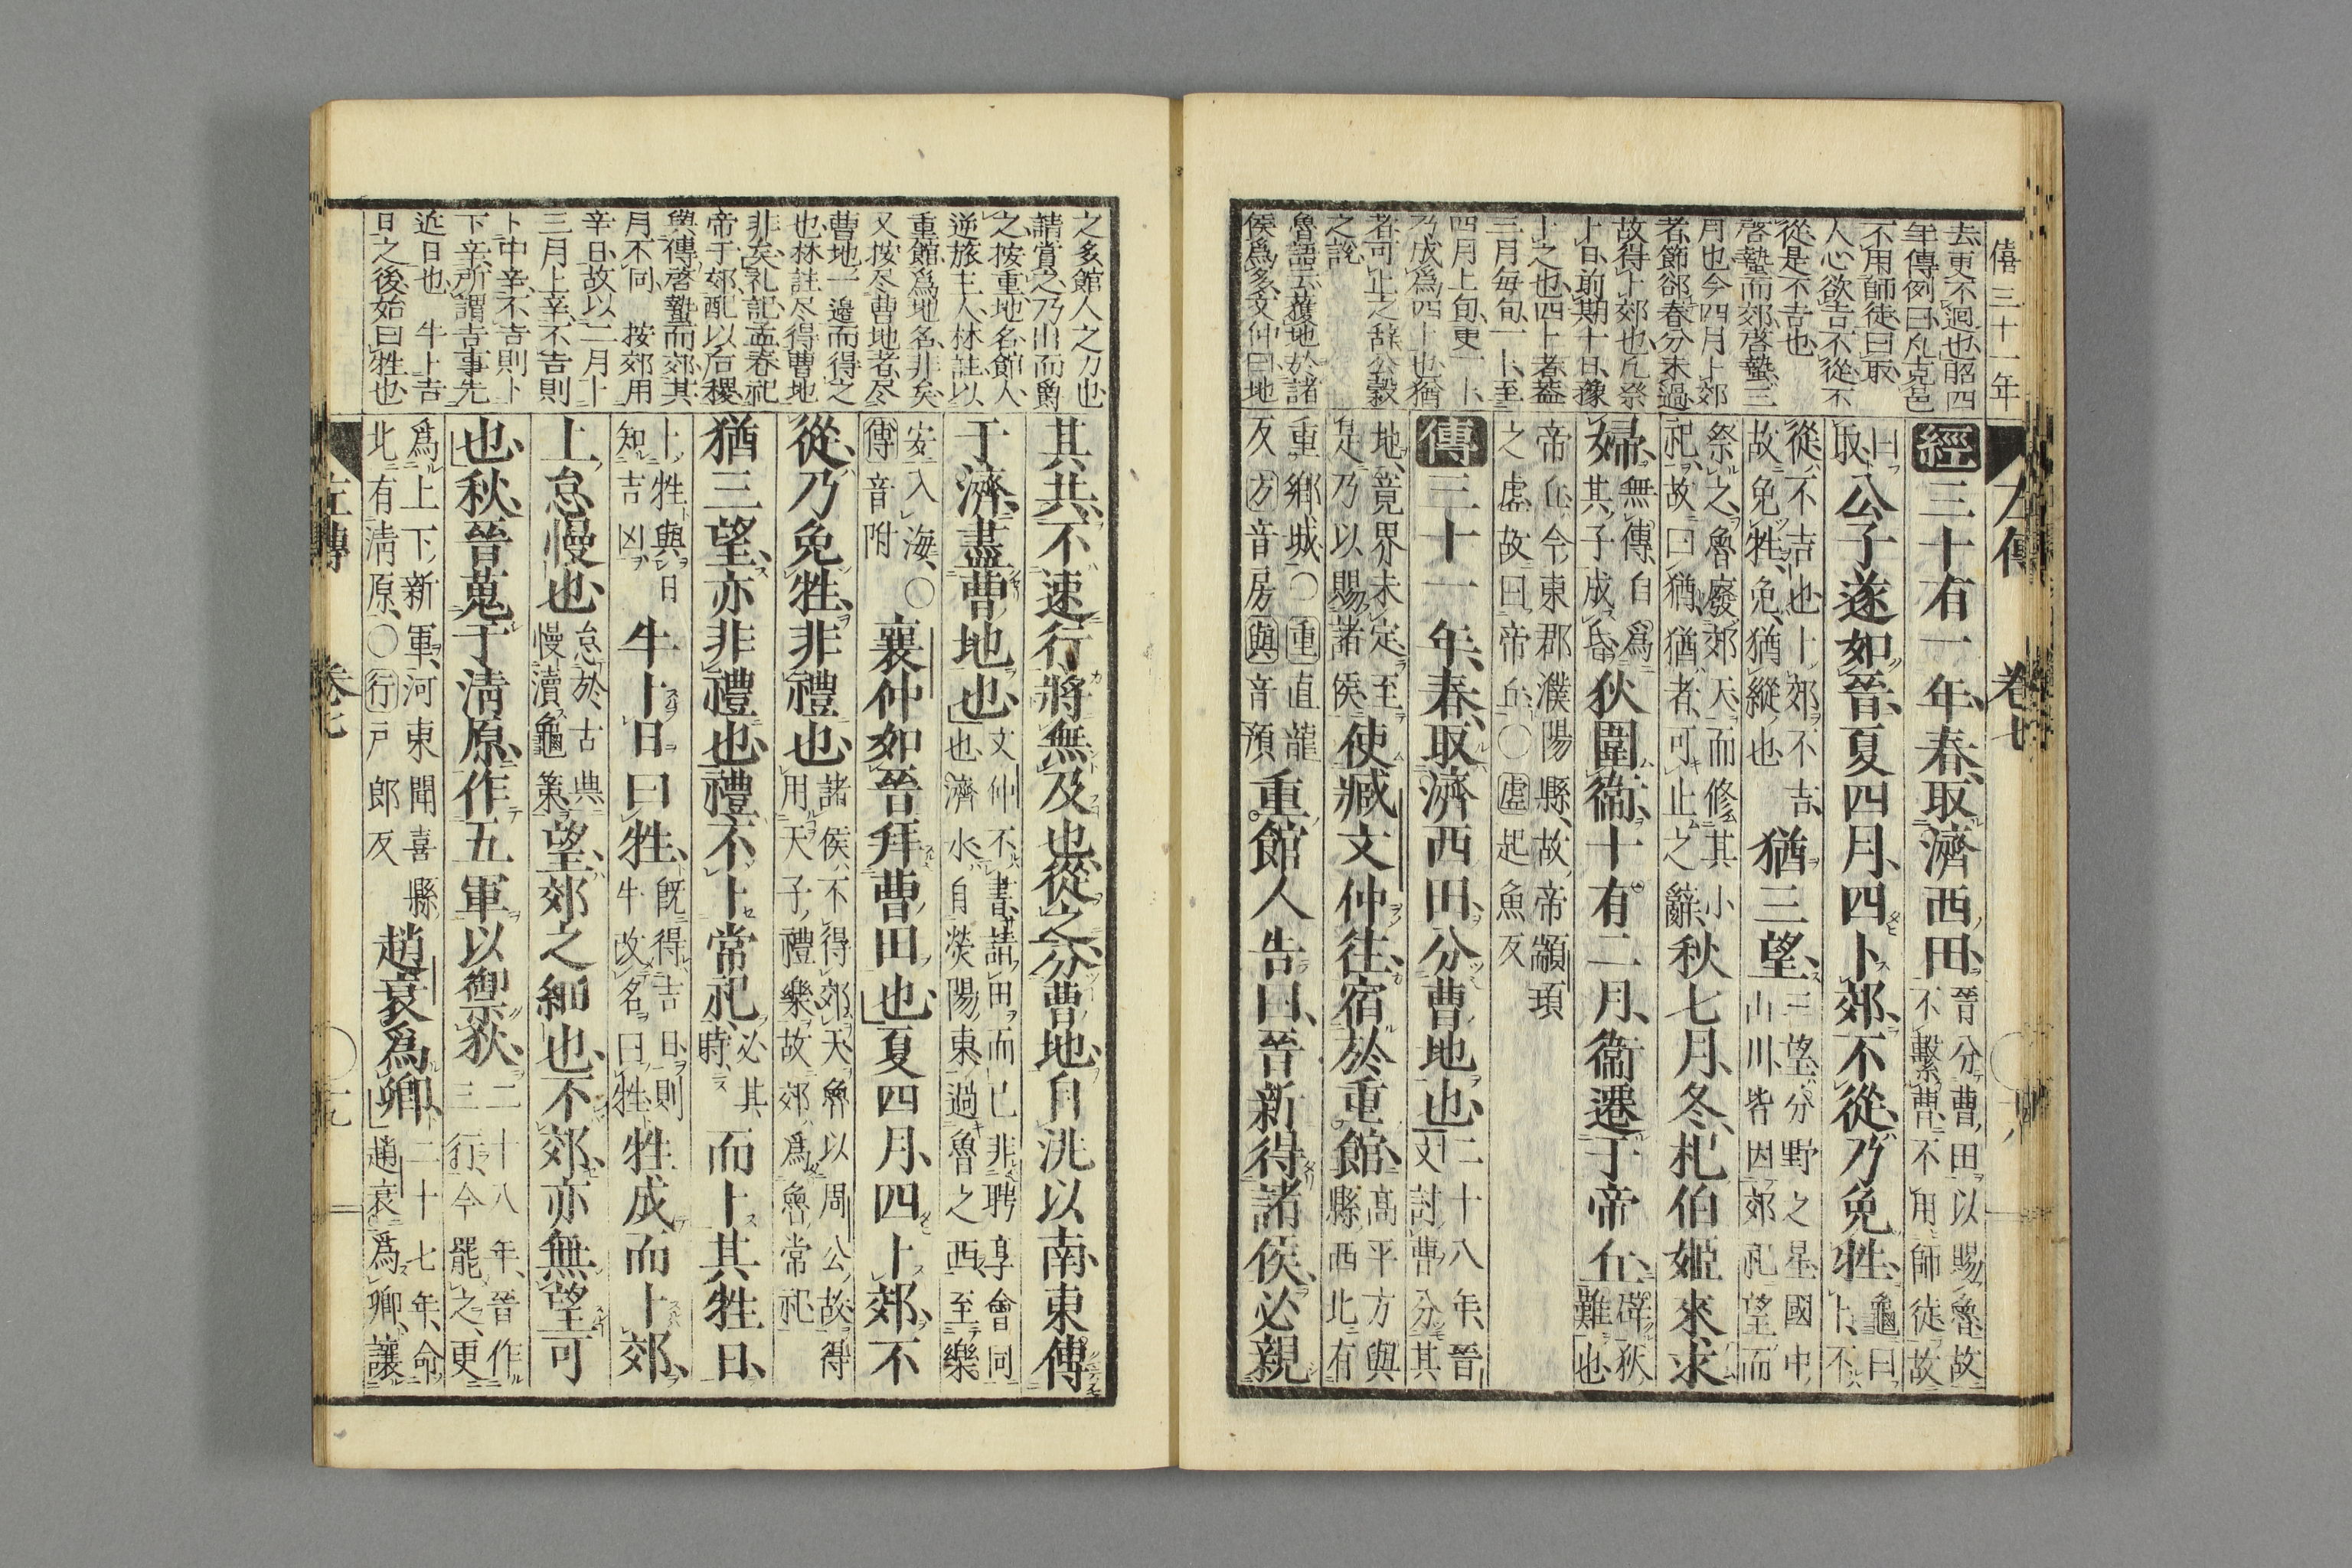 僖三十一年
左傳 卷七
去、更不迴也、昭四
年傳例曰、凡克邑
不用師徒曰取、
人心欲吉不從、不
從是不吉也、
啓蟄而郊、啓蟄三
月也、今四月卜郊
者、節郤春分未過、
故得卜郊也、凡祭
卜日、前期十日、豫
卜之也、四卜者、蓋
三月毎旬一卜、至
四月上旬、更一卜、
乃成爲四卜也、猶
者、可止之辞、公穀
之說
魯語云、獲地於諸
侯爲多、文仲曰、地
經三十有一年、春、取濟西田、晉分曹田以賜魯、故不繫曹、不用師徒、故
曰取、公子遂如晉、夏四月、四卜郊、不從、乃免牲、龜曰卜、不
從、不吉也、卜郊不吉、故免牲、免猶縱也猶三望、三望、分野之星、國中山川、皆因郊祀望而
祭之、魯廢郊天、而修其小祀、故曰猶、猶者、可止之辭、秋七月、冬、杞伯姬來求
婦、無傳、自爲其子成昏、狄圍衞、十有二月、衞遷于帝丘、辟狄難也
帝丘、今東郡濮陽縣、故帝顓頊之虛、故曰帝丘、〇虛起魚反
傳三十一年、春、取濟西田、分曹地也、二十八年、晉文討曹、分其
地、竟界未定、至是乃以賜諸侯、使臧文仲往、宿於重館、高平方與縣西北有
重鄉城、〇重直龍反方音房與音預重館人告曰、晉新得諸侯、必親
之多館人之力也
請賞之、乃出而爵
之、按重、地名、館人、
逆旅主人、林註以
重館爲地名、非矣、
又按尽曹地者、尽
曹地一邊而得之
也、林註尽得曹地
非矣、礼記、孟春祀
帝于郊、配以后稷、
與傳啓蟄而郊、其
月不同 按郊用
辛日、故以二月卜
三月上辛、不吉則
卜中辛、不吉則卜
下辛、所謂吉事先
近日也 牛卜吉
日之後、始曰牲也
其共、不速行、將無及也、從之、分曹地、自洮以南、東傅
于濟、盡曹地也、文仲不書、請田而已、非聘享會同也、濟水、自滎陽東、過魯之西、至樂
安入海、〇傅音附襄仲如晉、拜曹田也、夏四月、四卜郊、不
從、乃免牲、非禮也、諸侯不得郊天、魯以周公故、得用天子禮樂、故郊爲魯常祀
猶三望、亦非禮也、禮不卜常祀、必其時、而卜其牲日、
卜牲與日知吉凶牛卜日曰牲、旣得吉日、則牛改名曰牲牲成而卜郊、
上怠慢也、怠於古典慢瀆龜策望、郊之細也、不郊、亦無望可
也、秋、晉蒐于淸原、作五軍以禦狄、二十八年、晉作三行、今罷之、更
爲上下新軍、河東聞喜縣北有淸原、〇行戶郎反趙衰爲卿、二十七年、命趙衰爲卿、讓
左傳 卷七